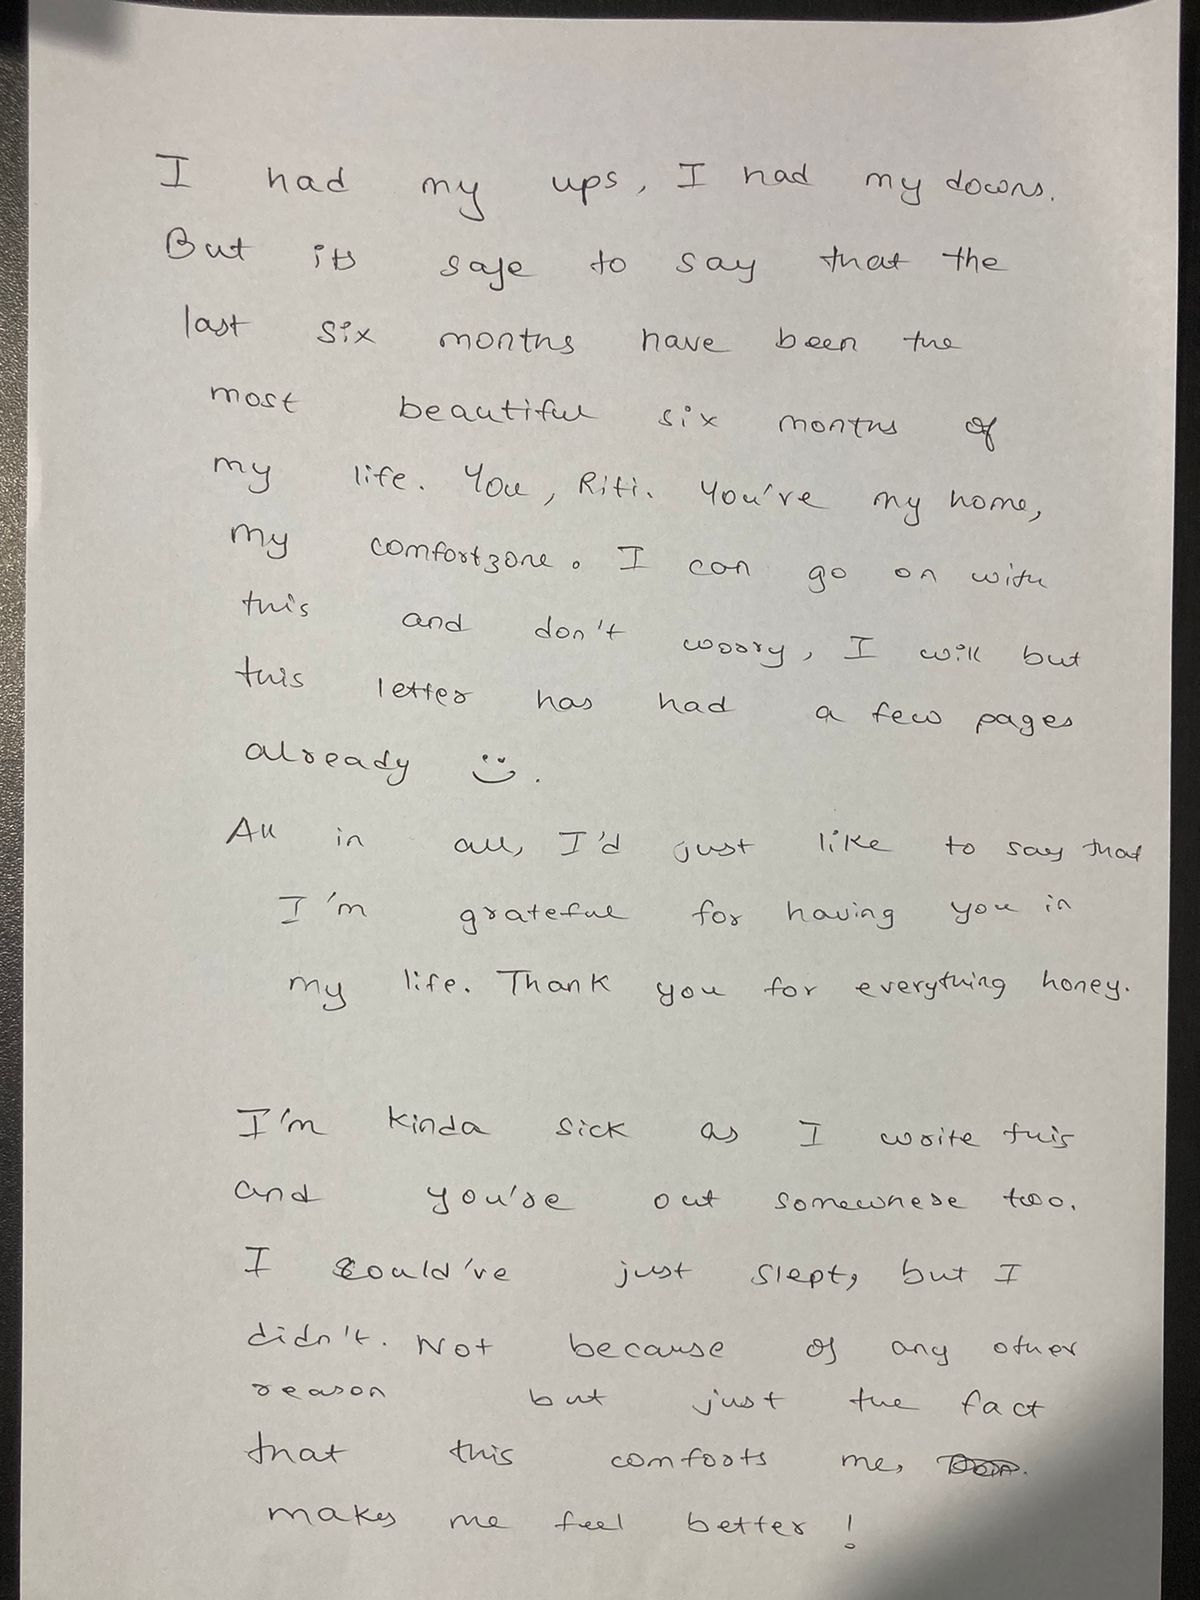 I had my ups, I had my downs.
But its safe to say that the
last six months have been the
most beautiful six months of
my life. You, Riti. You've my home,
my comfortzone. I can go on with
this and don't worry, I will but
this letter has had a few pages
already :).
All in all, I'd just like to say that
I'm grateful for having you in
my life. Thank you for everything honey.
I'm kinda sick as I write this
and you're out somewhere too.
I could've just slept, but I
didn't. Not because of any other
reason but just the fact
that this comforts me,
makes me feel better!